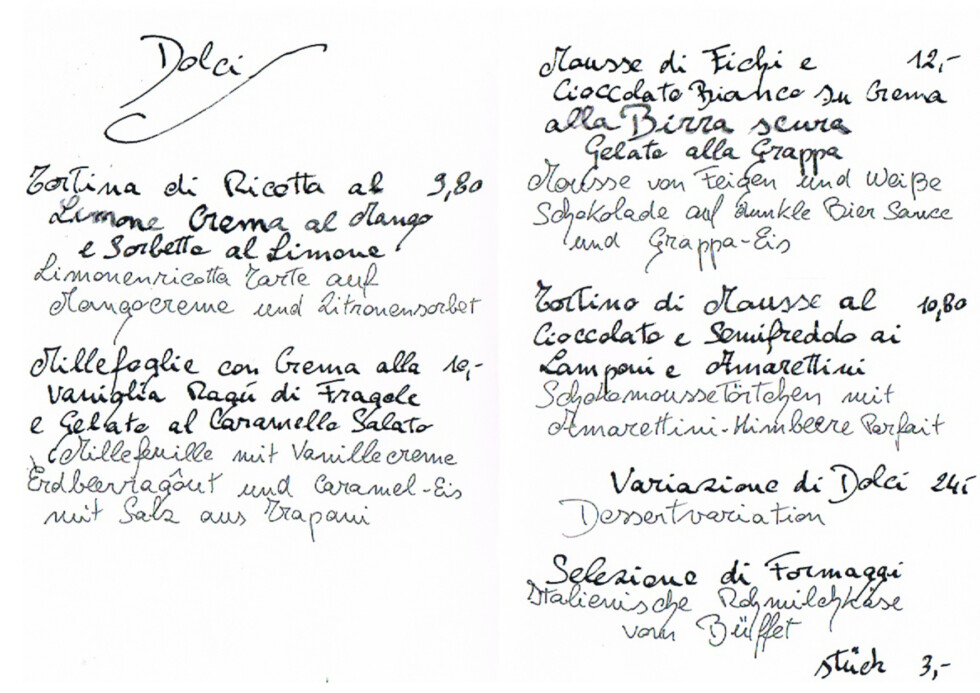 Dolci
Tortina di Ricotta al 9,80
Limone Crema al Mango
e Sorbetto al Limone
Limonenricotta Tarte auf
Mangocreme und Zitronensorbet
Millefoglie con Crema alla 10,-
Vaniglia Ragú di Fragole
e Gelato al Caramello Salato
Millefeuille mit Vanillecreme
Erdbeerragôut und Caramel-Eis
mit Salz aus Trapani
Mousse di Fichi e 12,-
Cioccolato Bianco su Crema
alla Birra scura
Gelato alla Grappa
Mousse von Feigen und Weiße
Schokolade auf dunkle Bier Sauce
und Grappa-Eis
Tortino di Mousse al 10,80
Cioccolato e Semifreddo ai
Lamponi e Amarettini
Schokomousse Törtchen mit
Amarettini-Himbeere Parfait
Variazione di Dolci 24,-
Dessertvariation
Selezione di Formaggi
Italienische Rohmilchkäse
vom Büffet
stück 3,-